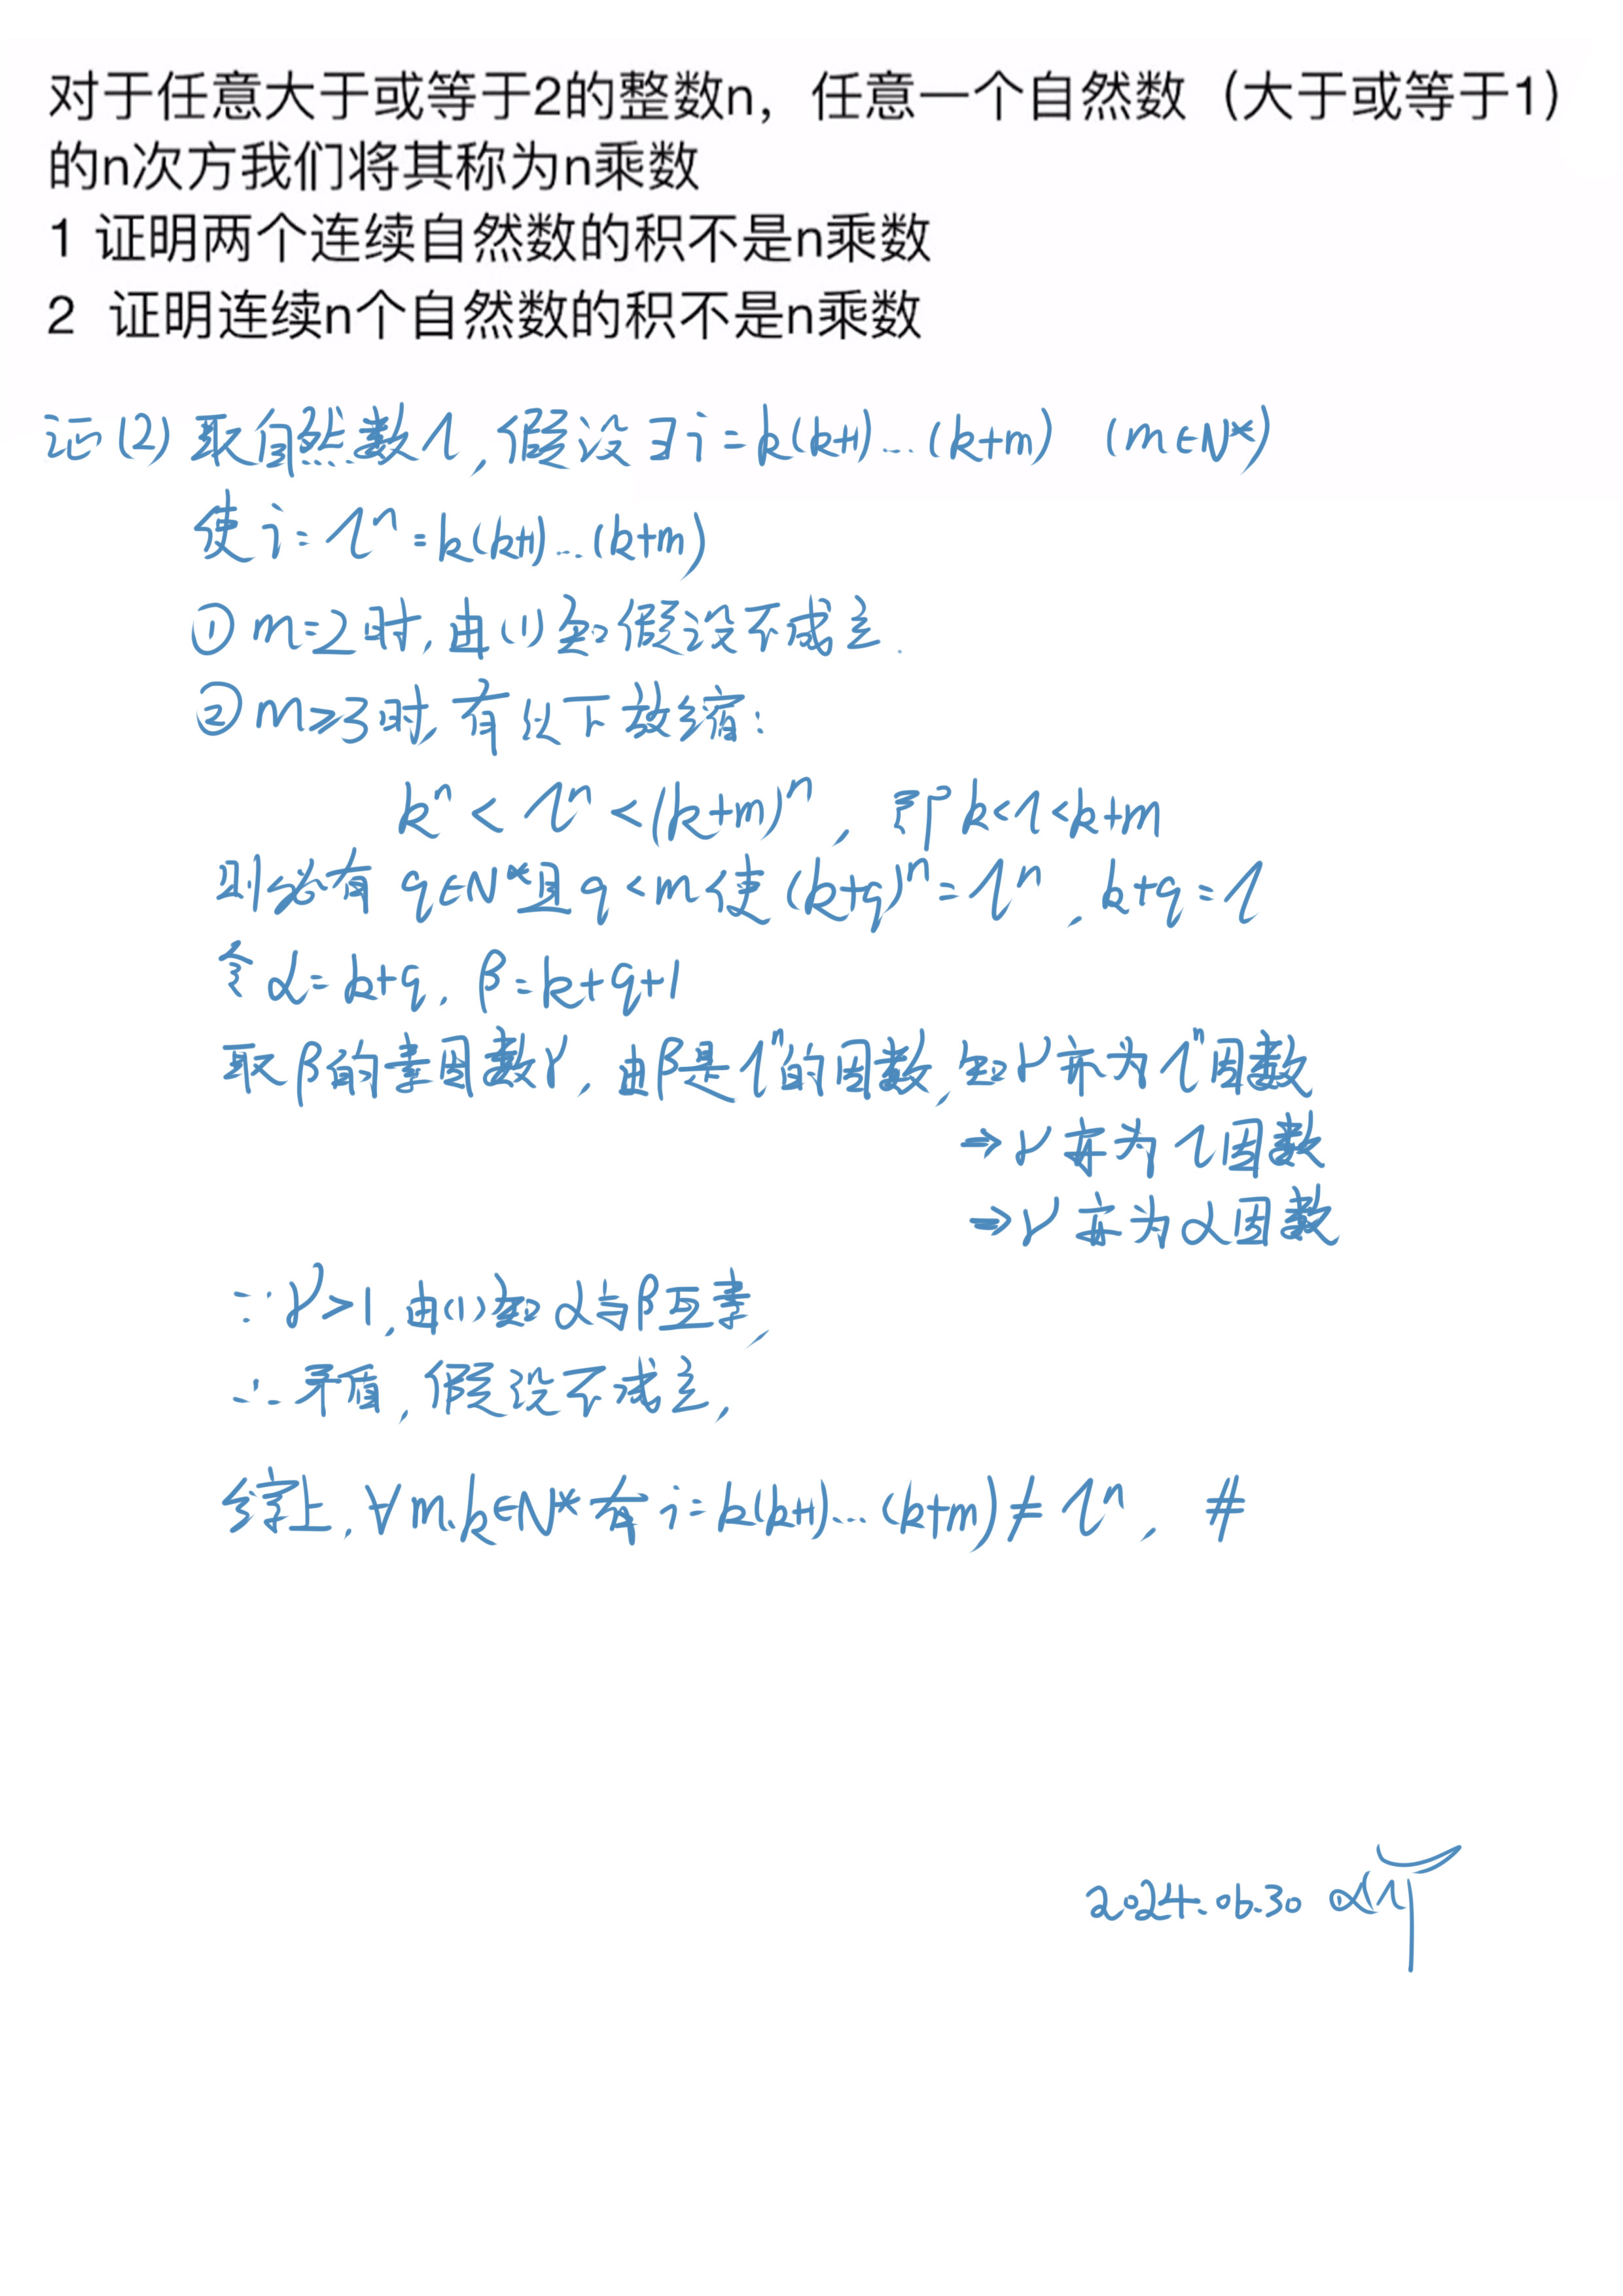 对于任意大于或等于2的整数n，任意一个自然数（大于或等于1）
的n次方我们将其称为n乘数
1 证明两个连续自然数的积不是n乘数
2 证明连续n个自然数的积不是n乘数
证(2) 取自然数l，假设∃i=k(k+1)…(k+m) (m∈N*)
使i=lⁿ=k(k+1)…(k+m)
① m=2时，由(1)知假设不成立.
② m≥3时，有以下放缩：
kⁿ<lⁿ<(k+m)ⁿ，即k<l<k+m
则必有 q∈N*且q<m使(k+q)ⁿ=lⁿ，k+q=l
令α=k+q，β=k+q+1
取β的素因数γ，由β是lⁿ的因数，知γ亦为lⁿ因数
⇒γ亦为l因数
⇒γ亦为α因数
∵γ>1，由(1)知α与β互素，
∴矛盾，假设不成立，
综上，∀m,k∈N*有i=k(k+1)…(k+m)≠lⁿ， #
2024.06.30